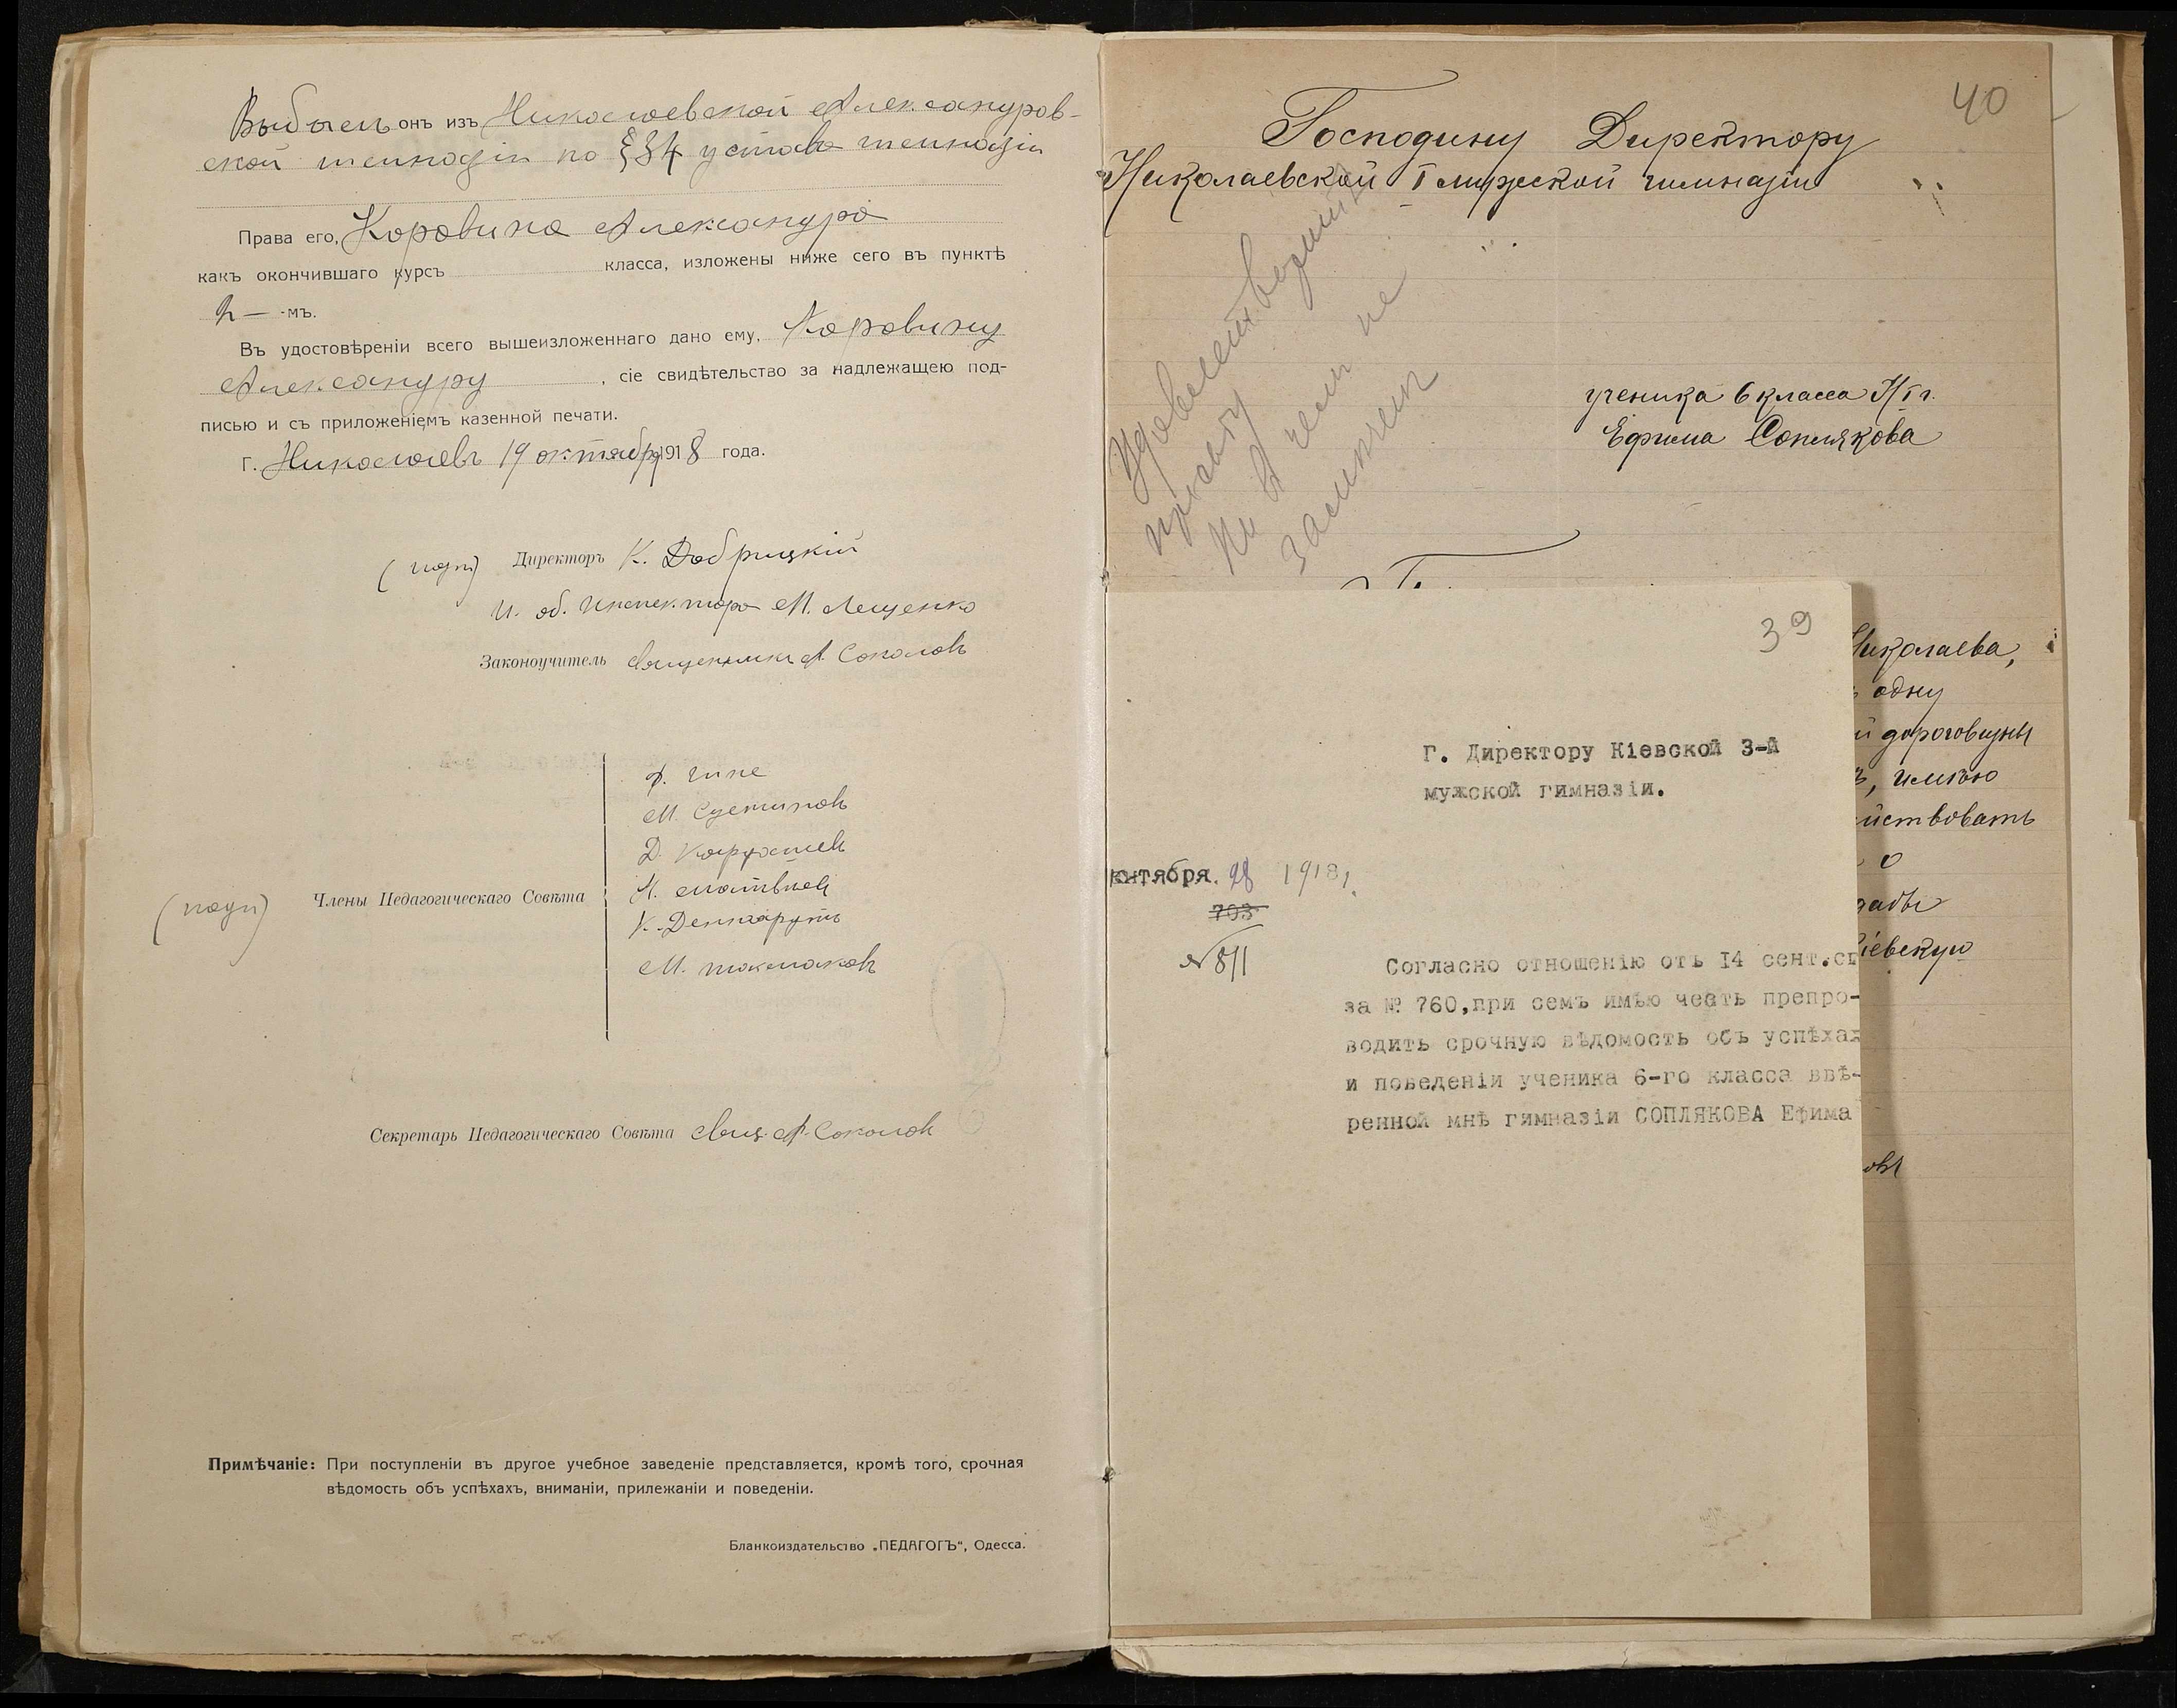 Выбылъ онъ изъ Николаевской Александров-
ской гимназіи по §34 устава гимназіи
Права его, Коровина Александра
какъ окончившаго курсъ класса, изложены ниже сего въ пунктѣ
2 — -мъ.
Въ удостовѣреніи всего вышеизложеннаго дано ему, Коровину
Александру, сіе свидѣтельство за надлежащею под-
писью и съ приложеніемъ казенной печати.
г. Николаевъ 19 октября 1918 года.
(подп) Директоръ К. Добрицкій
И. об. Инспектора М. Лещенко
Законоучитель Священникъ А. Соколовъ
(подп) Члены Педагогическаго Совѣта
М.
Д.
К.
М.
Секретарь Педагогическаго Совѣта Свящ. А. Соколовъ
Примѣчаніе: При поступленіи въ другое учебное заведеніе представляется, кромѣ того, срочная
вѣдомость объ успѣхахъ, вниманіи, прилежаніи и поведеніи.
Бланкоиздательство „ПЕДАГОГЪ“, Одесса.
40
Господину Директору
Николаевской I мужской гимназіи
ученика 6 класса Н I г.
Ефима Соплякова
Ни в чем не
замечен
39
Г. Директору Кіевской 3-й
мужской гимназіи.
ктября 28 1918 г.
703
№ 811
Согласно отношенію отъ 14 сент.с
за № 760,при семъ имѣю честь препро-
водить срочную вѣдомость объ успѣхах
и поведеніи ученика 6-го класса ввѣ-
ренной мнѣ гимназіи СОПЛЯКОВА Ефима
Николаева,
одну
й дороговизны
, имѣю
йствовать
о
дабы
іевскую
овы